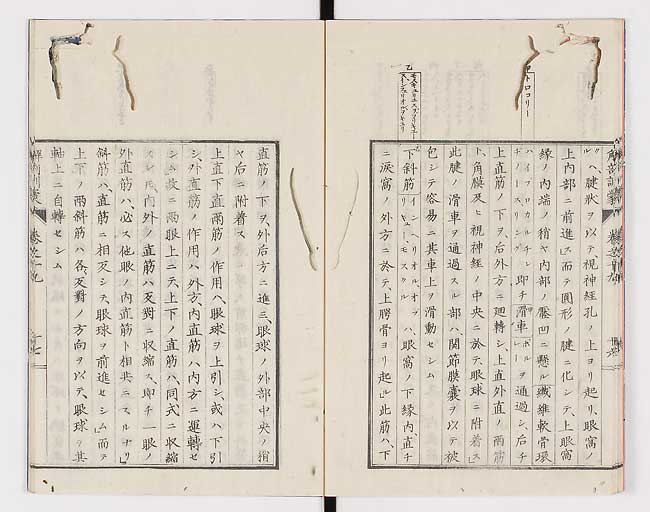 クハ、腱狀ヲ以テ視神經孔ノ上ヨリ起リ、眼窩ノ
上内部ニ前進シ而テ圓形ノ腱ニ化シテ、上眼窩
緣ノ内端ノ稍ヤ内部ノ壓凹ニ懸ル纎維軟骨環
即チ滑車ヲ通過シ、后チ
上直筋ノ下ヲ、后外方ニ廻轉シ、上直外直ノ兩筋
ト、角膜及ヒ視神經ノ中央ニ於テ、眼球ニ附着ス
此腱ノ滑車ヲ通過スル部ハ、關節膜囊ヲ以テ被
包シテ容易ニ其車上ヲ滑動セシム
下斜筋 ハ、眼窩ノ下緣内直チ
ニ淚窩ノ外方ニ於テ、上腭骨ヨリ起ル此筋ハ、下
トロコリー
乙
直筋ノ下ヲ、外后方ニ進ミ、眼球ノ外部中央ノ稍
ヤ后ニ附着ス
上直下直兩筋ノ作用ハ、眼球ヲ上引シ或ハ下引
シ、外直筋ノ作用ハ外方、内直筋ハ内方ニ運轉セ
シム故ニ兩眼上ニテ、上下ノ直筋ハ、同式ニ收縮
スレ𪜈、内外ノ直筋ハ反對ニ收縮ス、即チ一眼ノ
外直筋ハ、必ス他眼ノ内直筋ト相共ニスルナリ
斜筋ハ、直筋ニ相反シテ、眼球ヲ前進セシム而テ
上下ノ兩斜筋ハ各反對ノ方向ヲ以テ、眼球ヲ其
軸上ニ自轉セシム